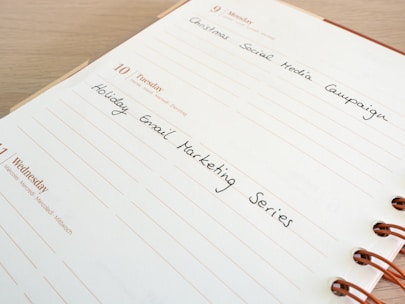 9 Monday
Christmas Social Media Campaign
10 Tuesday
Holiday Email Marketing Series
11 Wednesday